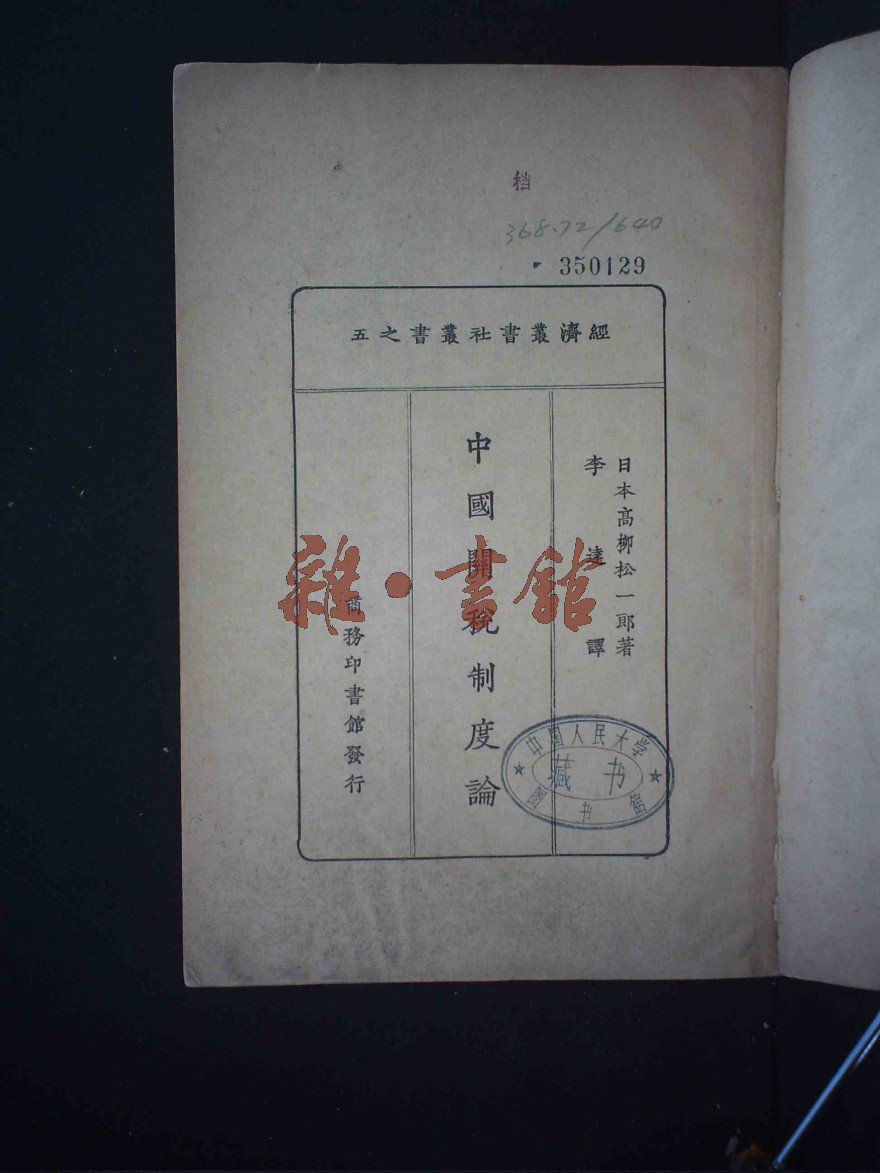 档
368.72/640
350129
經濟叢書社叢書之五
日本高柳松一郎著
李達譯
中國關稅制度論
商務印書館發行
雜·書館
中国人民大学
藏书
图书馆